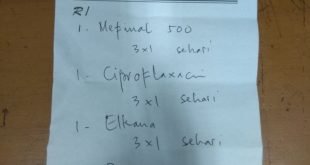 R/
1. Mefinal 500
3x1 sehari
1- Ciprofloxacin
3x1 sehari
1- Elkana
3x1 sehari